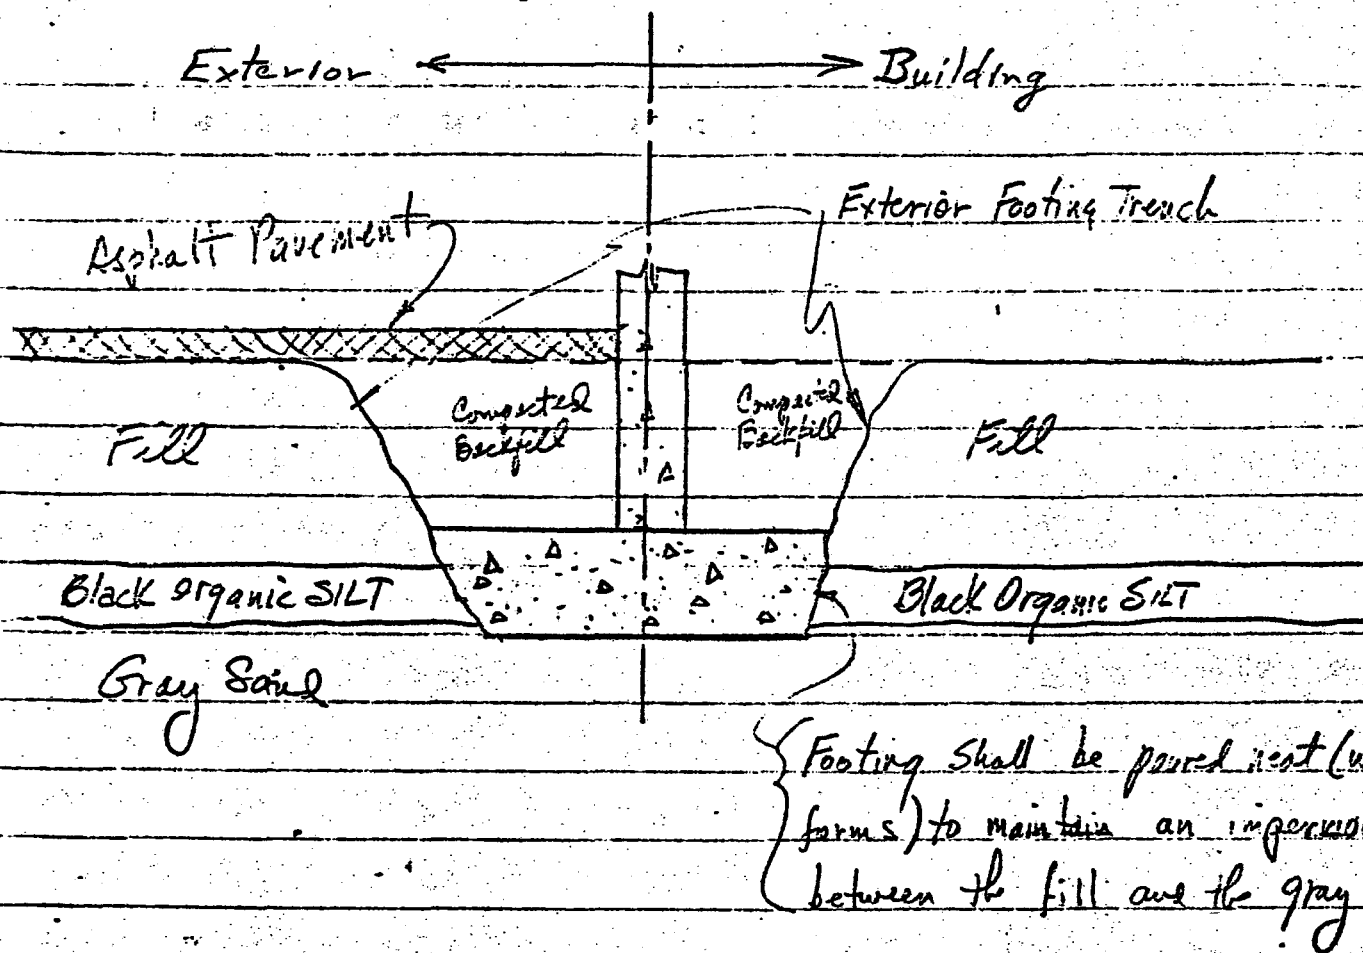 Exterior
Building
Exterior Footing Trench
Asphalt Pavement
Compacted
Backfill
Compacted
Backfill
Fill
Fill
Black Organic SILT
Black Organic SILT
Gray Sand
Footing Shall be poured neat (w
forms) to maintain an impervio
between the fill and the gray